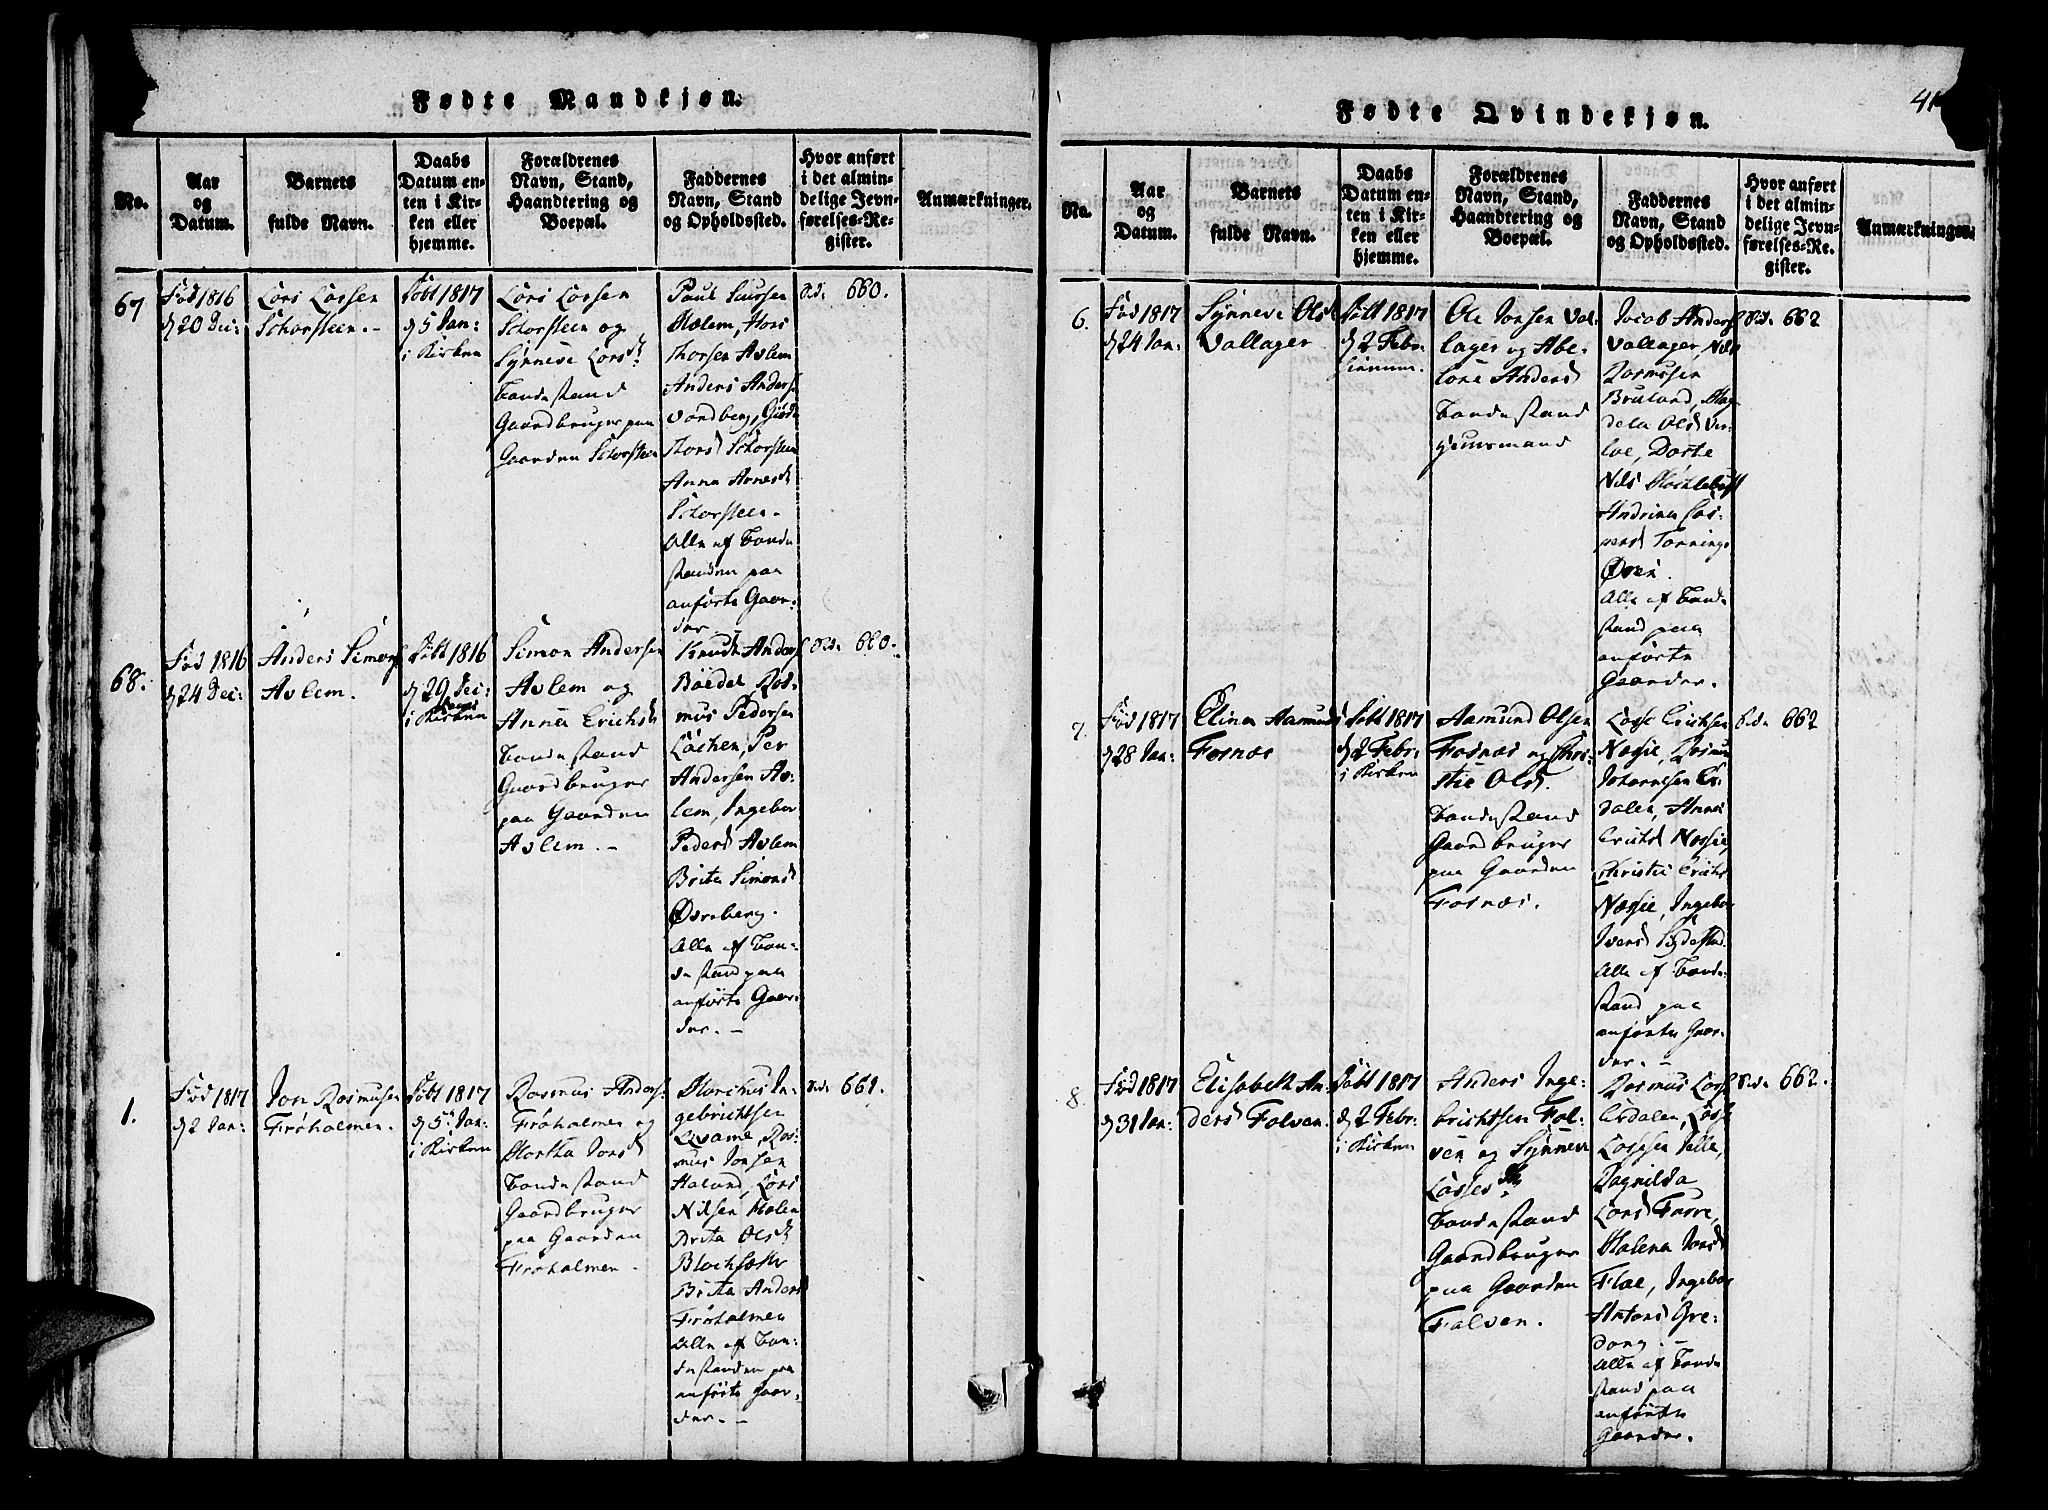 41
Fødte Mandkjøn.
No.
Aar
og
Datum.
Barnets
fulde Navn.
Daabs
Datum en-
ten i Kir-
ken eller
hjemme.
Forældrenes
Navn, Stand,
Haandtering og
Boepæl.
Faddernes
Navn, Stand
og Opholdssted.
Hvor anført
i det almin-
delige Jevn-
førelses-Re-
gister.
Anmærkninger.
67
Fød 1816
d 20 Dec:
Lars Larsen
Schorsteen.-
Døbt 1817
d 5 Jan:
i Kirken
Lars Larsen
Schorsteen og
Synneve Larsd
Bondestand
Gaardbruger paa
Gaarden Schorsteen
Paul Laursen
Molem, Hans
Thorsen Avlem
Anders Anders
Vardberg,
Schorsteen
Anna Arnesd
Schorsteen.
Alle af Bonde
standen paa
anførte Gaar-
der.
660.
68.
Fød 1816
d 24 Dec:
Anders Simons
Avlem.
Døbt 1816
d 29 Dec:
i Kirken
Simon Andersen
Avlem og
Anna Erichsd
Bondestand
Gaardbruger
paa Gaarden
Avlem.-
Knud Anders
Bøedal, Ras-
mus Pedersen
Løchen, Per
Andersen Av-
lem, Ingebor
Pedersd Avlem
Brite Simonsd
Øvreberg.
Alle af Bon-
destand paa
anførte Gaar-
der.-
660.
1.
Fød 1817
d 2 Jan:
Jon Rasmusen
Frøholmen.
Døbt 1817
d 5 Jan:
i Kirken
Rasmus Anders
Frøholmen og
Martha Jonsd
Bondestand
Gaardbruger
paa Gaarden
Frøholmen.
In-
gebrichtsen
Qvame, Ras-
mus Jonsen
Haland, Lars
Nilsen Molen
Brita Olsd
Brita Anders
Frøholmen
Alle af Bon-
destanden paa
anførte Gaar-
der.-
661.
Fødte Qvindekjøn.
No.
Aar
og
Datum.
Barnets
fulde Navn.
Daabs
Datum en-
ten i Kir-
ken eller
hjemme.
Forældrenes
Navn, Stand,
Haandtering og
Boepæl.
Faddernes
Navn, Stand
og Opholdssted.
Hvor anført
i det almin-
delige Jevn-
førelses-Re-
gister.
Anmærkninger.
6.
Fød 1817
d 24 Jan:
Synneve Olsd
Vallager
Døbt 1817
d 2 Febr:
hiemme.
Ole Jonsen Val-
lager og Abe-
lone Anders
Bondestand
Huusmand
Jacob Anders
Vallager, Nils
Rasmusen
Bruland, Mag-
dela Olsd
Dorte
Nils
Andrine Cas-
persd Tornings
Øren.
Alle af Bonde
stand paa
anførte
Gaarder.
662
7.
Fød 1817
d 28 Jan:
Elina Aamunds
Fosnæs
Døbt 1817
d 2 Febr:
i Kirken
Aamund Olsen
Fosnæs og Chri-
stie Olsd.
Bondestand
Gaardbruger
paa Gaarden
Fosnæs.
Lasse Erichsen
Næsie, Rasmus
Johannesen Er-
dalen, Anna
Erichsd Næssie,
Christie Erichs
Næsie, Ingebor
Ivers
Alle af Bonde-
stand paa
anførte Gaar-
der.-
662
8.
Fød 1817
d 31 Jan:
Elisabeth An-
ders Folven.
Døbt 1817
d 2 Febr:
i Kirken
Anders Inge-
brichtsen Fol-
ven og Synneve
Lasses
Bondestand
Gaardbruger
paa Gaarden
Folven.
Rasmus Lass
Erdalen, Lasse
Lassesen
Ragnilda
Larsd Furre,
Malena Jonsd
Flae, Ingebor
Antons Gre-
dong.-
Alle af Bonde
stand paa
anførte
Gaarder.
662.